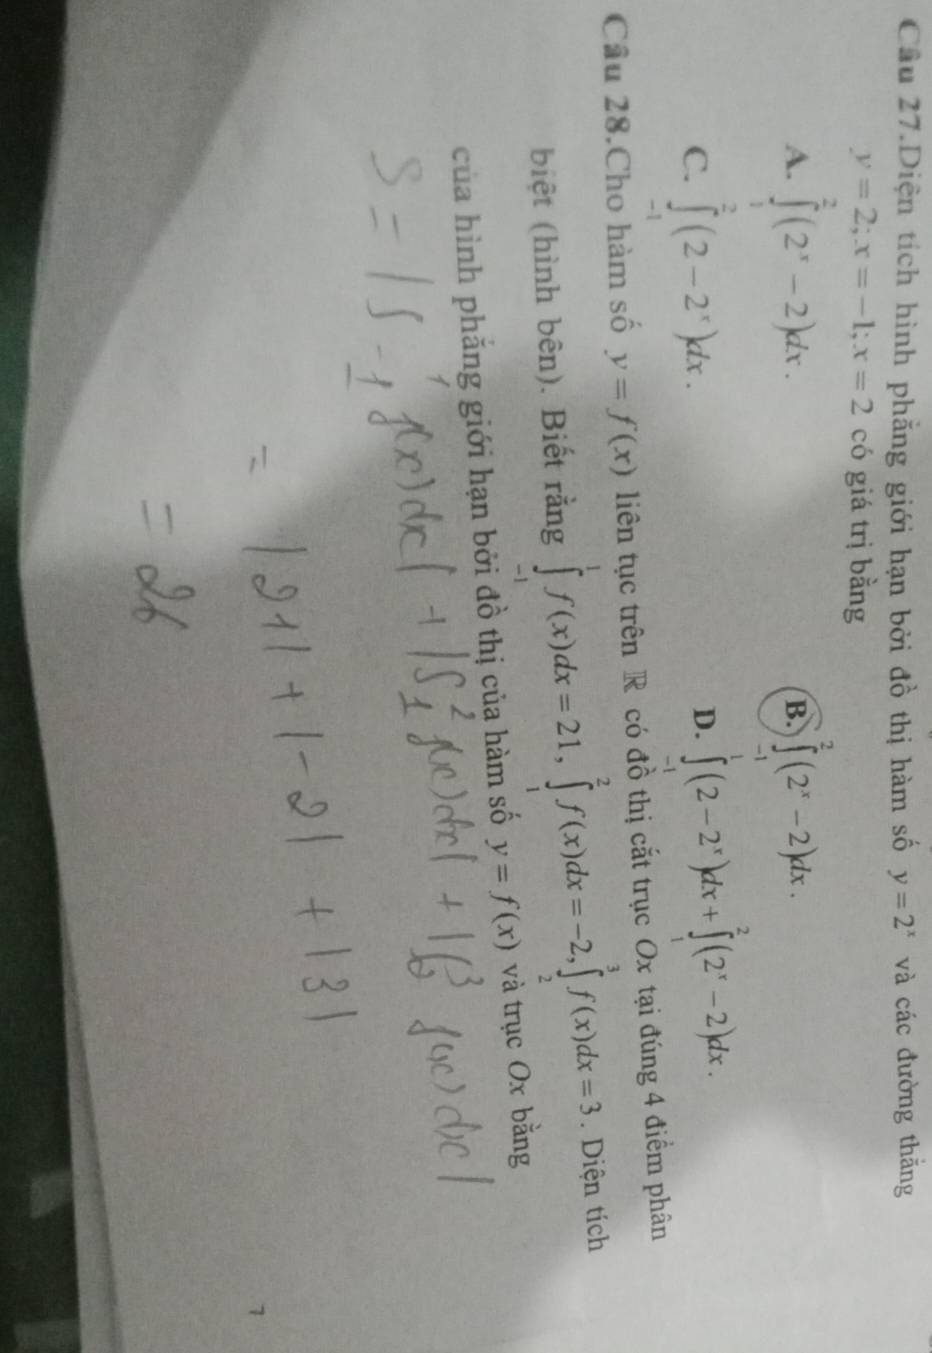 Câu 27.Diện tích hình phẳng giới hạn bởi đồ thị hàm số y = 2^x và các đường thẳng
y = 2; x = −1; x = 2 có giá trị bằng
A. ∫_1^2 (2^x − 2)dx. B. ∫_{-1}^2 (2^x − 2)dx.
C. ∫_{-1}^2 (2 − 2^x)dx. D. ∫_{-1}^1 (2 − 2^x)dx + ∫_1^2 (2^x − 2)dx.
Câu 28.Cho hàm số y = f(x) liên tục trên ℝ có đồ thị cắt trục Ox tại đúng 4 điểm phân
biệt (hình bên). Biết rằng ∫_{-1}^1 f(x)dx = 21, ∫_1^2 f(x)dx = −2, ∫_2^3 f(x)dx = 3. Diện tích
của hình phẳng giới hạn bởi đồ thị của hàm số y = f(x) và trục Ox bằng
S = |∫_{-1}^1 f(x)dx| + |∫_1^2 f(x)dx| + |∫_2^3 f(x)dx|
= |21| + |−2| + |3|
= 26
7